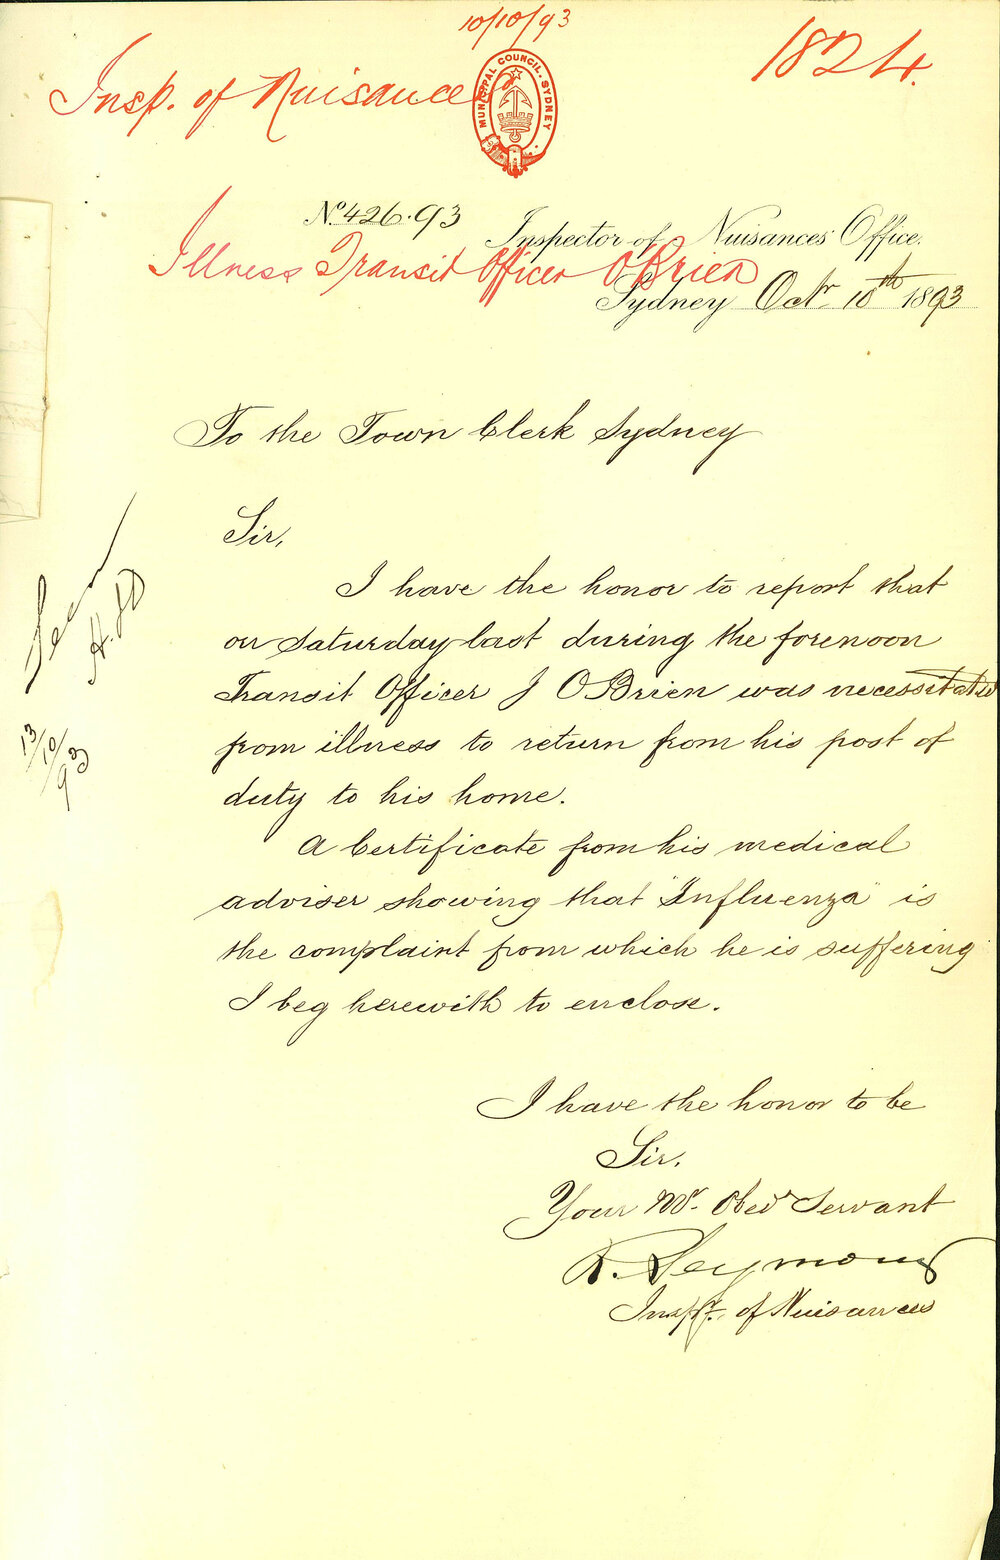 10/10/93
1824.
Insp. of Nuisances
MUNICIPAL COUNCIL. SYDNEY
No. 426.93
Inspector of Nuisances Office.
Illness Transit Officer O'Brien
Sydney Octr. 10th 1893
To the Town Clerk Sydney
Sir,
I have the honor to report that
on Saturday last during the forenoon
Transit Officer J O'Brien was necessitated
from illness to return from his post of
duty to his home.
A Certificate from his medical
adviser showing that "Influenza" is
the complaint from which he is suffering
I beg herewith to enclose.
I have the honor to be
Sir,
Your Mt. Obedt Servant
R. Seymour
Inspr. of Nuisances
Seen
13/10/93